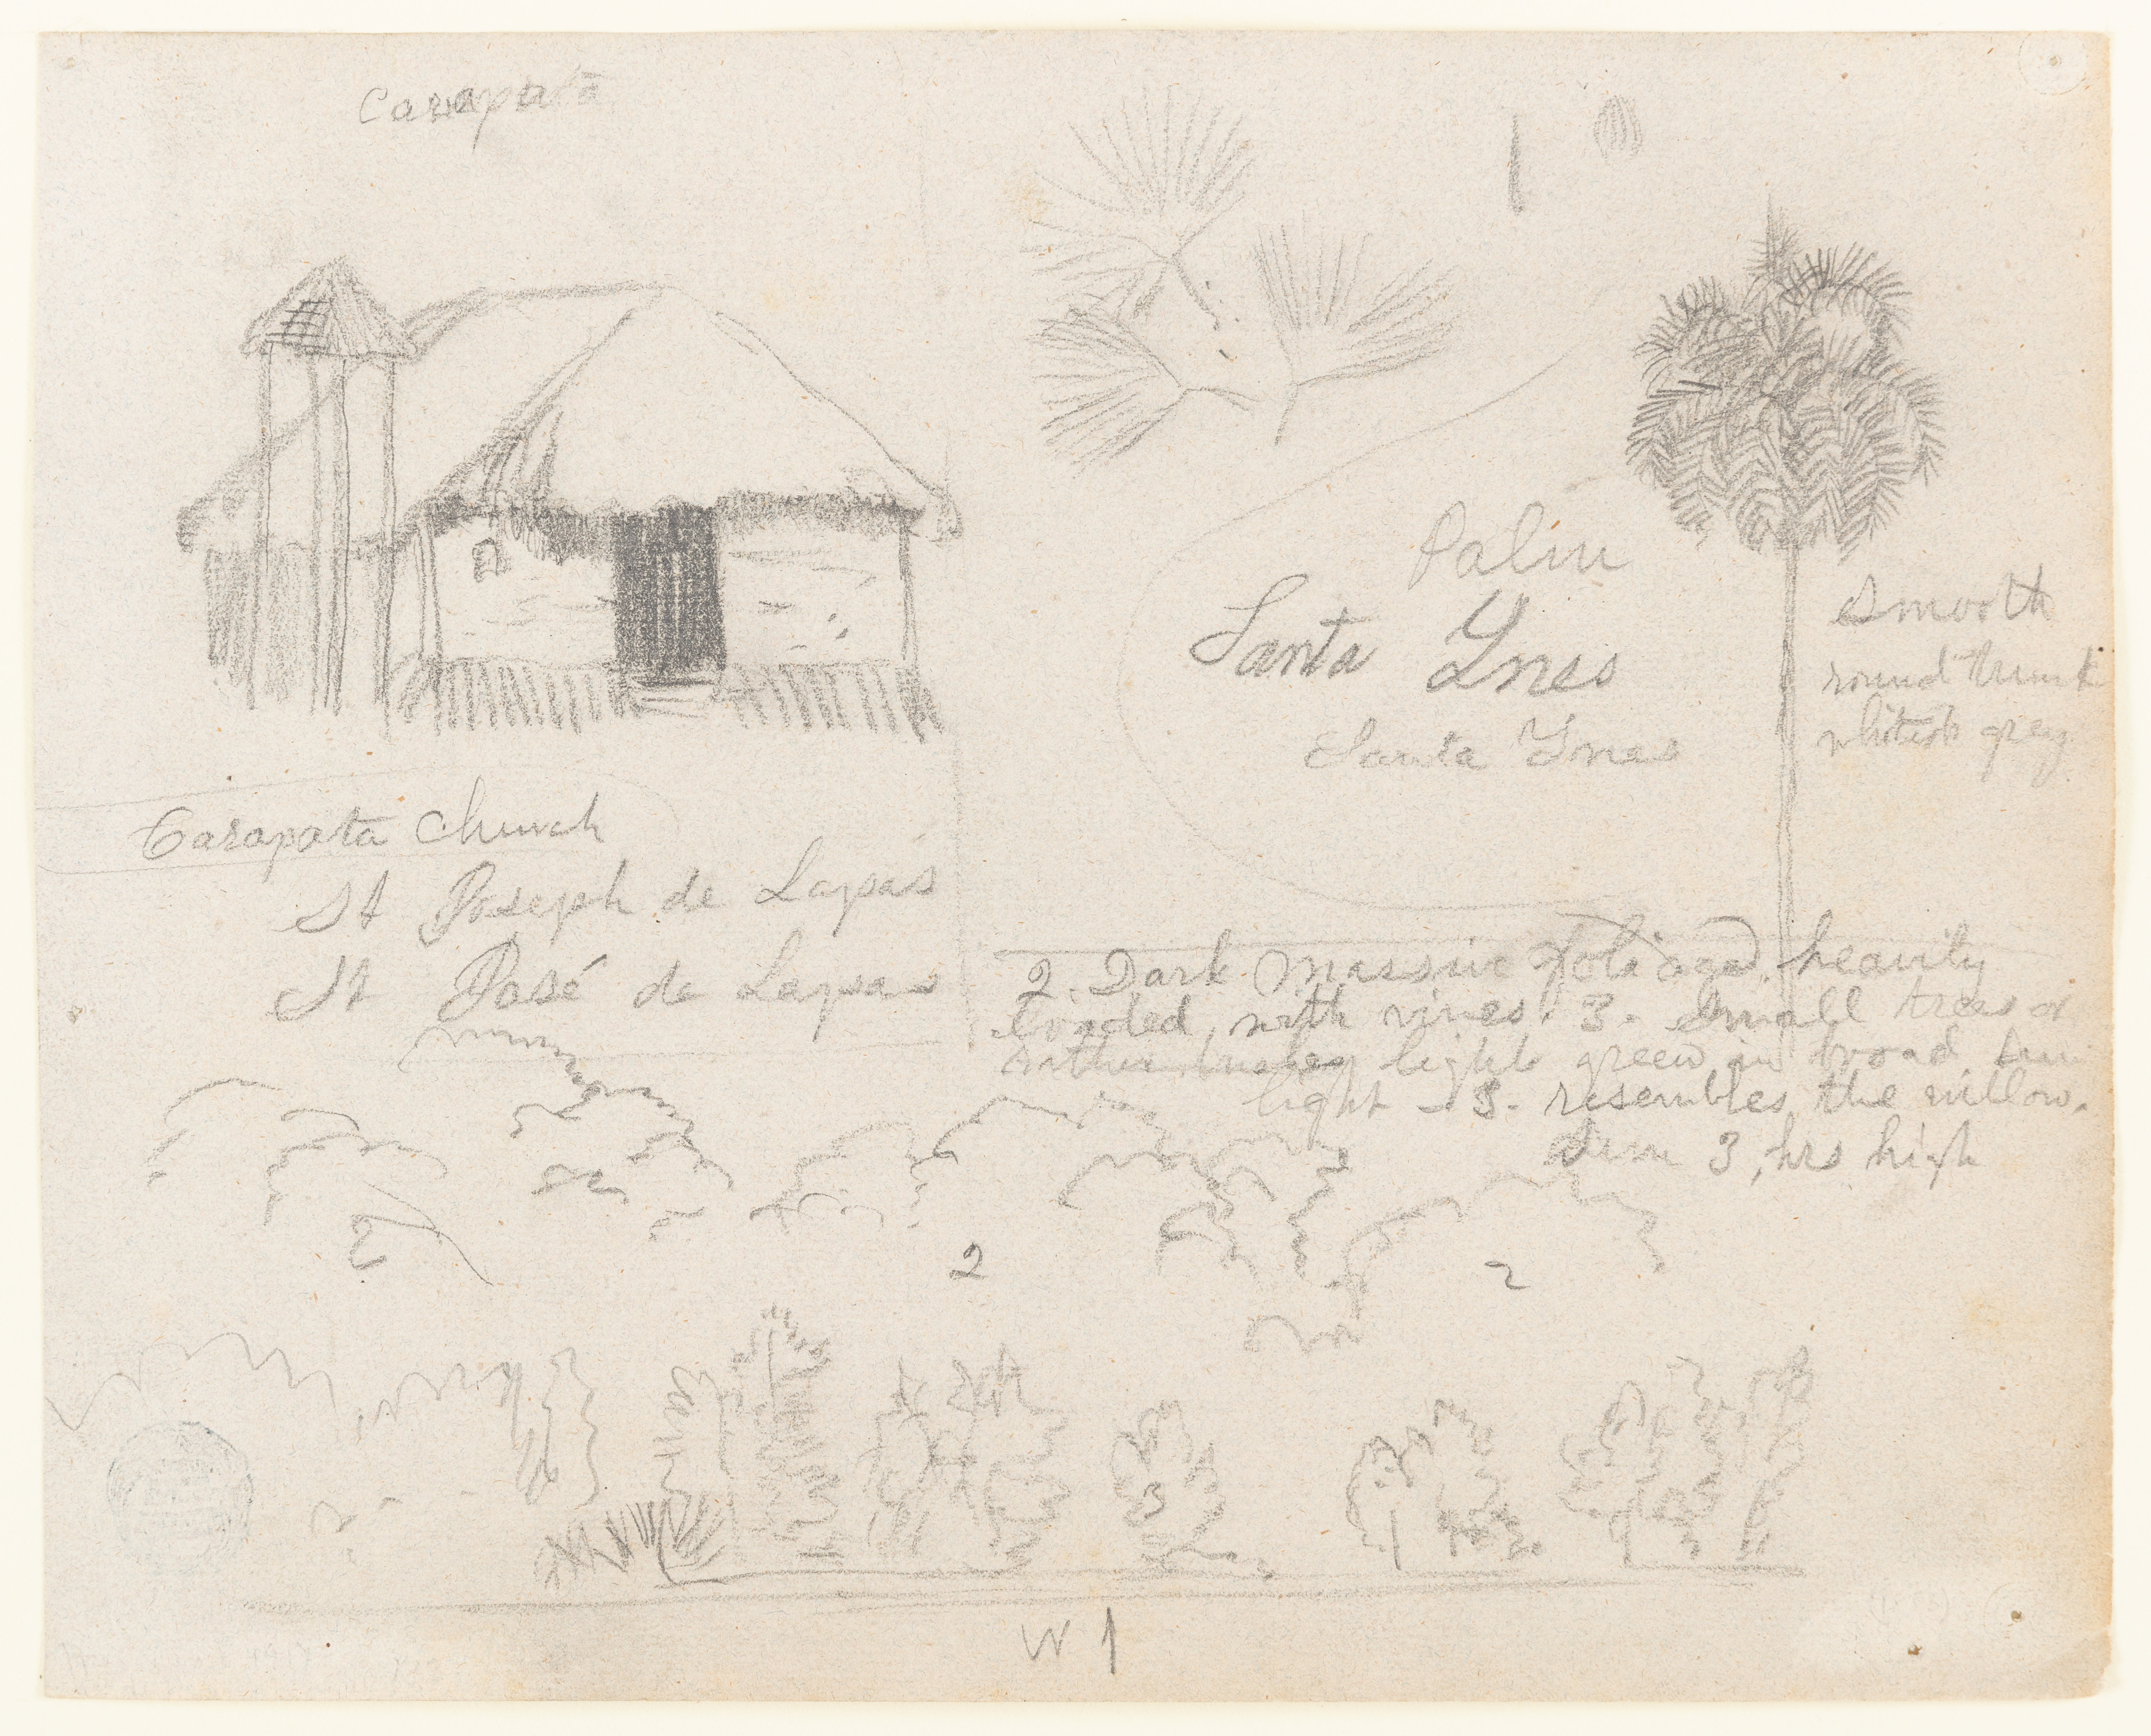 Carapata
Palm
Santa Ynes
Santa Ynes
Smooth
round trunk
whitish grey
Carapata Church
St Joseph de Lapas
St José de Lapas
2. Dark Massive foliage, heavily
loaded, with vines. 3 - Small trees or
rather bushes light green in broad sun
light - 3 - resembles the willow.
Sun 3, hrs high
2
2
2
3
W 1